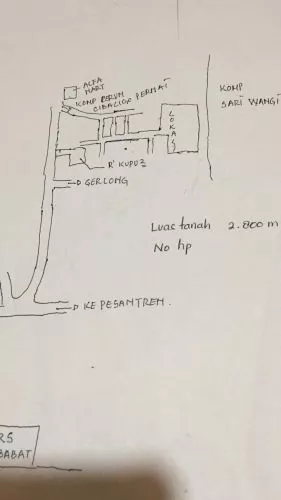 ALFA
MART
KOMP PERUM
CIBALIGO PERMAI
KOMP
SARI WANGI
LOKASI
R' KUPOZ
GERLONG
Luas tanah 2.800 m
No hp
KE PESANTREN.
RS
BABAT